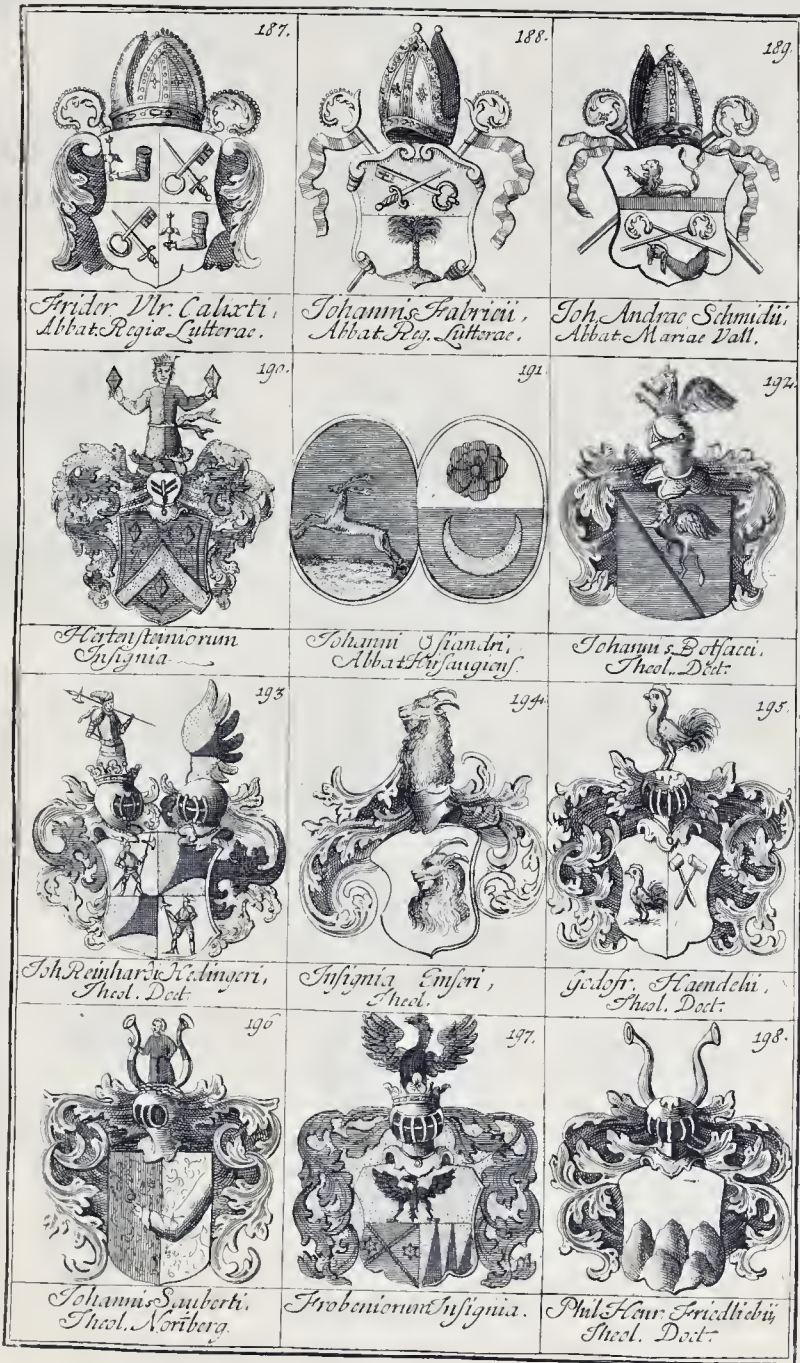 187.
Frider Vlr. Calixti,
Abbat. Regiæ Lutterae.
188.
Johannis Fabricii,
Abbat. Reg. Lutterae.
189.
Joh. Andrae Schmidii,
Abbat. Mariae Vall.
190.
Hertensteiniorum
Insignia
191
Johanni Osiandri,
Abbat Hirsaugiens.
192.
Johannis Botsacci.
Theol. Doct.
193
Joh. Reinhardi Hedingeri,
Theol. Doct
194.
Insignia Emseri,
Theol.
195.
Godofr. Haendelii,
Theol. Doct.
196
Johannis Sauberti.
Theol. Noriberg.
197.
Frobeniorum Insignia.
198.
Phil. Henr. Friedliebii,
Theol. Doct.